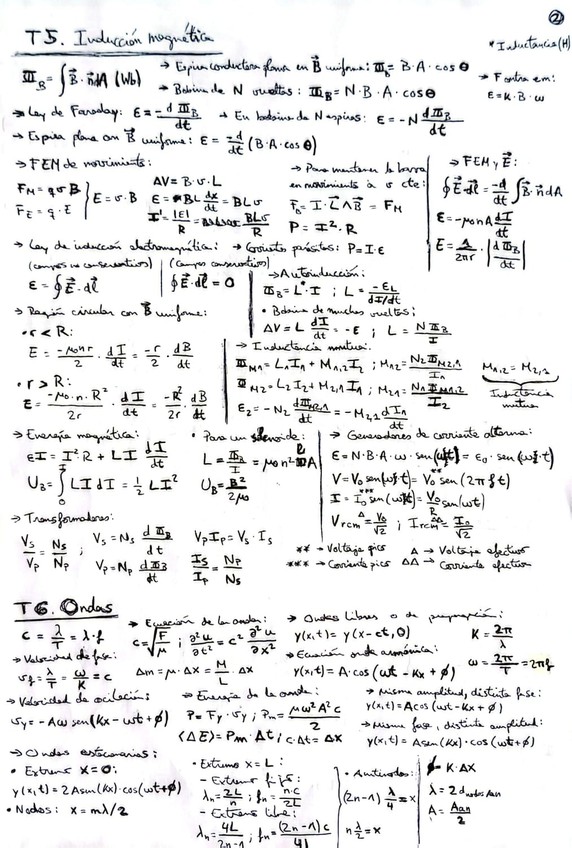 ②
T5. Inducción magnética
* Inductancia (H)
Φ_B = ∫ B⃗ · n̄ dA (Wb)
→ Espira conductora plana en B⃗ uniforme: Φ_B = B·A·cos θ
→ Bobina de N vueltas: Φ_B = N·B·A·cos θ
→ F
em:
E = K·B·ω
→ Ley de Faraday: E = -dΦ_B/dt
→ En bobina de N espiras: E = -N dΦ_B/dt
→ Espira plana con B⃗ uniforme: E = -d/dt (B·A·cos θ)
→ FEM de movimiento:
F_M = q v B
F_E = q·E
} E = v·B
ΔV = B·v·L
E = BL dx/dt = BLv
I = |E|/R = BLv/R
→ Para mantener la barra
en movimiento a v cte:
F_B = I·L⃗ ∧ B⃗ = F_M
P = I²·R
→ FEM y E⃗:
∮ E⃗·dl⃗ = -d/dt ∫ B⃗·n̄ dA
E = -μ₀nA dI/dt
E = 1/2πr · |dΦ_B/dt|
→ Ley de inducción eletromagnética:
(campos no conservativos)
E = ∮ E⃗·dl⃗
(campos conservativos)
∮ E⃗·dl⃗ = 0
→ Corrientes parásitas: P = I·E
→ Autoinducción:
Φ_B = L·I ; L = -E_L / dI/dt
• Bobina de muchas vueltas:
ΔV = L dI/dt = -E ; L = NΦ_B/I
→ Región circular con B⃗ uniforme:
• r < R:
E = -μ₀nr/2 · dI/dt = -r/2 · dB/dt
• r > R:
E = -μ₀·n·R²/2r · dI/dt = -R²/2r · dB/dt
→ Inductancia mutua:
Φ_M1 = L₁I₁ + M₁,₂I₂ ; M₁₂ = N₂Φ_M2,1/I₁
Φ_M2 = L₂I₂ + M₂,₁I₁ ; M₂₁ = N₁Φ_M1,2/I₂
E₂ = -N₂ dΦ_M2,1/dt = -M₂,₁ dI₁/dt
M₁,₂ = M₂,₁
Inductancia
mutua
→ Energía magnética:
EI = I²·R + LI dI/dt
U_B = ∫₀ᴵ LI dI = ½ LI²
• Para un solenoide:
L = Φ_B/I = μ₀n²lA
U_B = B²/2μ₀
→ Generadores de corriente alterna:
E = N·B·A·ω·sen(ωt) = E₀·sen(ωt)
V = V₀ sen(ωt) = V₀** sen(2πft)
I = I₀*** sen(ωt) = V₀/R sen(ωt)
Vrcm^Δ = V₀/√2 ; Ircm^ΔΔ = I₀/√2
** → Voltaje pico
*** → Corriente pico
Δ → Voltaje efectivo
ΔΔ → Corriente efectiva
→ Transformadores:
V_S/V_P = N_S/N_P ;
V_S = N_S dΦ_B/dt
V_P = N_P dΦ_B/dt
V_P I_P = V_S·I_S
I_S/I_P = N_P/N_S
T6. Ondas
c = λ/T = λ·f
→ Velocidad de fase:
v_f = λ/T = ω/K = c
→ Ecuación de la onda:
c = √(F/μ) ; ∂²u/∂t² = c² ∂²u/∂x²
Δm = μ·Δx = M/L Δx
→ Ondas libres o de propagación:
y(x,t) = y(x-ct,0)
→ Ecuación onda armónica:
y(x,t) = A·cos(ωt-Kx+ϕ)
K = 2π/λ
ω = 2π/T = 2πf
→ Velocidad de oscilación:
v_y = -Aω sen(Kx-ωt+ϕ)
→ Energía de la onda:
P = F_y·v_y ; P_m = μω²A²c/2
⟨ΔE⟩ = P_m·Δt ; c·Δt = Δx
→ Misma amplitud, distinta fase:
y(x,t) = A cos(ωt-Kx+ϕ)
→ Misma fase, distinta amplitud:
y(x,t) = A sen(Kx)·cos(ωt+ϕ)
→ Ondas estacionarias:
• Extremo x=0:
y(x,t) = 2A sen(Kx)·cos(ωt+ϕ)
• Nodos: x = mλ/2
• Extremo x=L:
- Extremo fijo:
λ_n = 2L/n ; f_n = n·c/2L
- Extremo libre:
λ_n = 4L/2n-1 ; f_n = (2n-1)c/4L
• Antinodos:
(2n-1) λ/4 = x
n λ/2 = x
ϕ = K·ΔX
λ = 2 d
A =